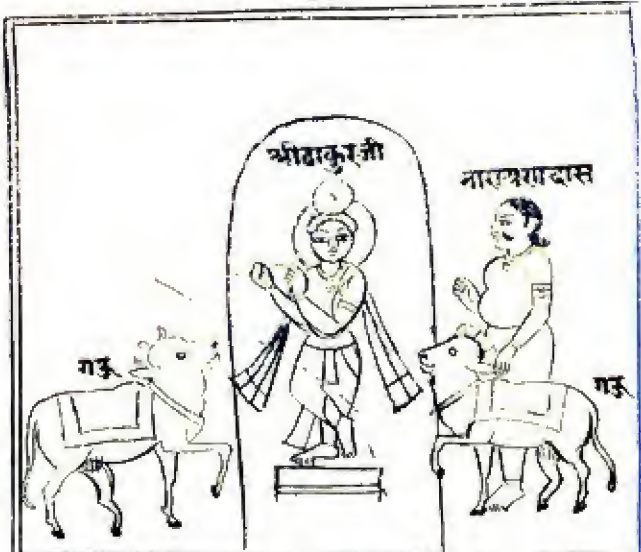 श्रीठाकुरजी
नारायणदास
गऊ
गऊ